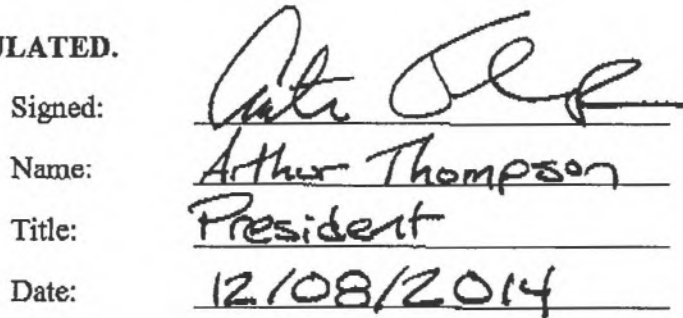 ULATED.
Signed:
Name: Arthur Thompson
Title: President
Date: 12/08/2014